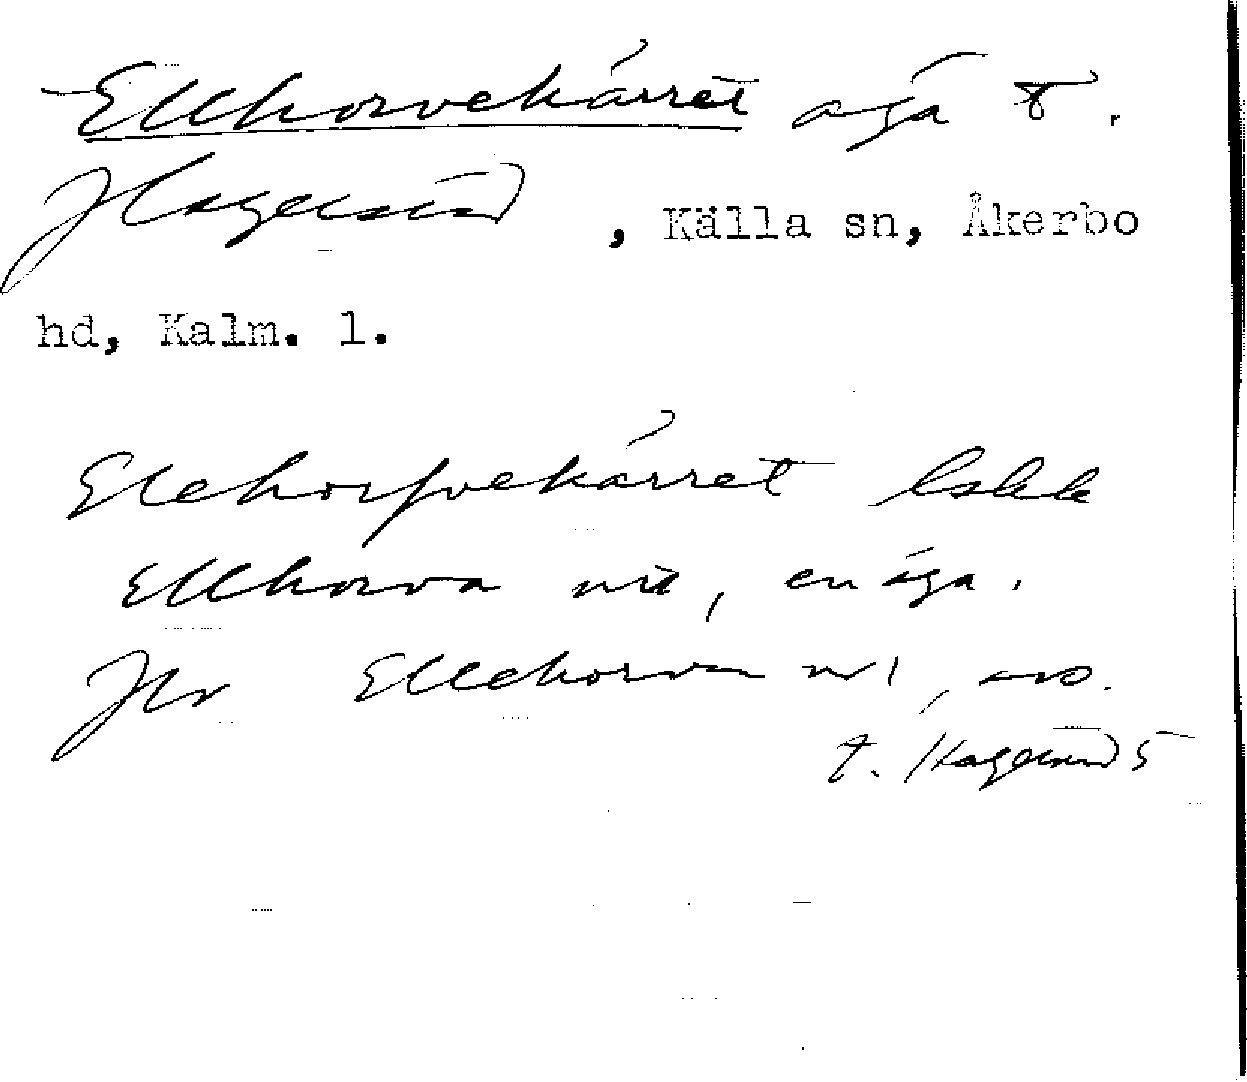 Ellhorvekärret äga t.
Hagelund, Källa sn, Åkerbo
hd, Kalm. l.
Ellehorfvekärret
Ellhorva nu, en äga.
Jfr Ellehorva nr 1,
t. Hagelund 5